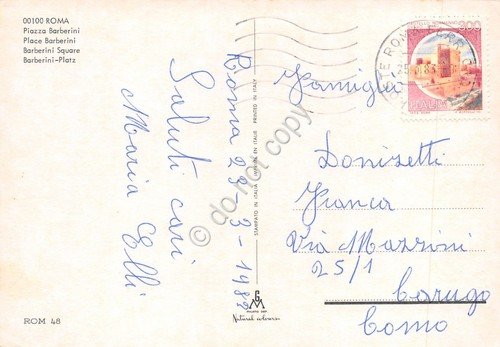 00100 ROMA
Piazza Barberini
Place Barberini
Barberini Square
Barberini-Platz
Saluti cari
Maria Elli
Roma 29-3-1983
STAMPATO IN ITALIA
PRINTED IN ITALY
do not copy
Famiglia
Donizetti
Franca
Via Mazzini
25/1
Carugo
Como
300
ITALIA
ROM 48